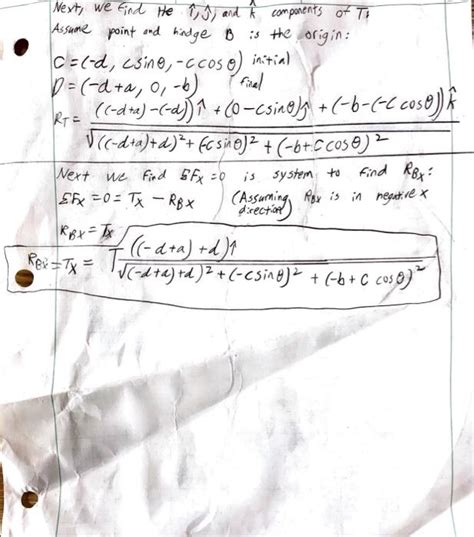 Next, we find the î, ĵ, and k̂ components of T.
Assume point and hindge B is the origin:
C = (-d, c sinθ, -c cosθ) initial
D = (-d+a, 0, -b) final
R_T = ((-d+a)-(-d))î + (0-c sinθ)ĵ + (-b-(-c cosθ))k̂ / √((-d+a)+d)² + (-c sinθ)² + (-b+c cosθ)²
Next we find ΣFx = 0 is system to find R_Bx:
ΣFx = 0 = Tx - R_Bx (Assuming R_Bx is in negative x direction)
R_Bx = Tx
R_Bx = Tx = T ((-d+a)+d)î / √(-d+a)+d)² + (-c sinθ)² + (-b+c cosθ)²